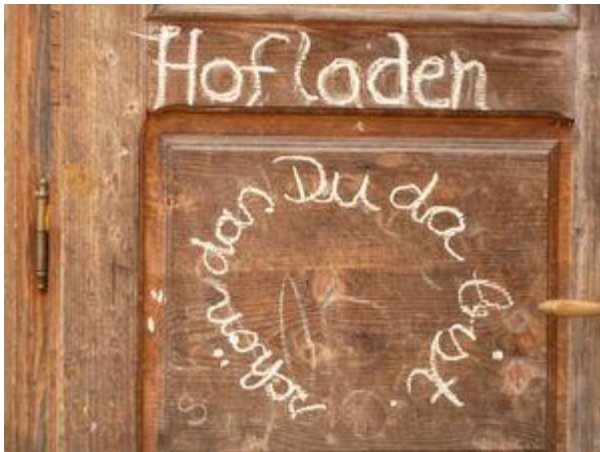 Hofladen
schön das Du da bist